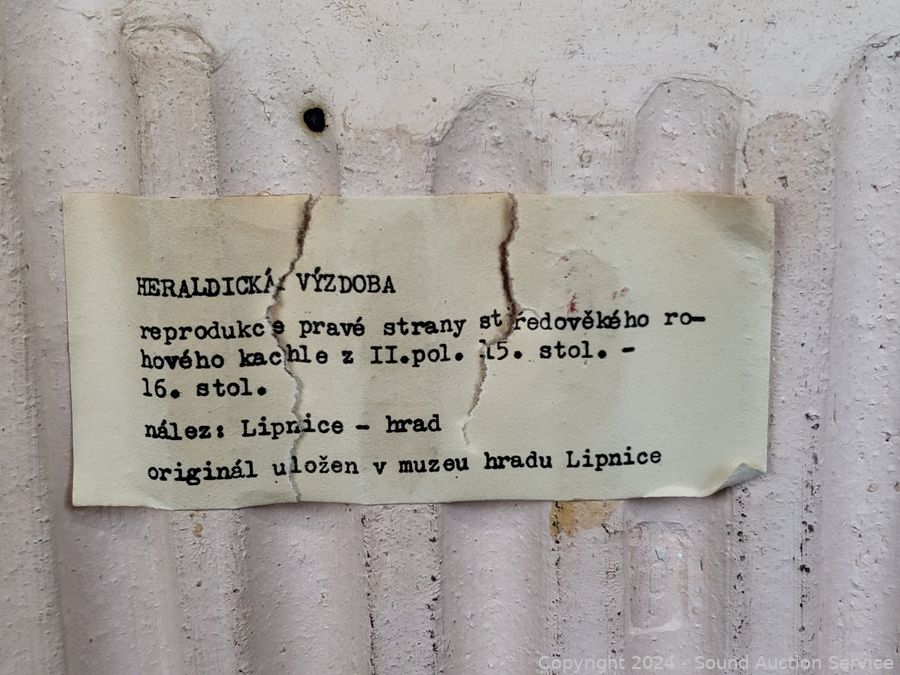 HERALDICKÁ VÝZDOBA
reprodukce pravé strany středověkého ro-
hového kachle z II.pol. 15. stol. -
16. stol.
nález: Lipnice - hrad
originál uložen v muzeu hradu Lipnice
Copyright 2024 - Sound Auction Service